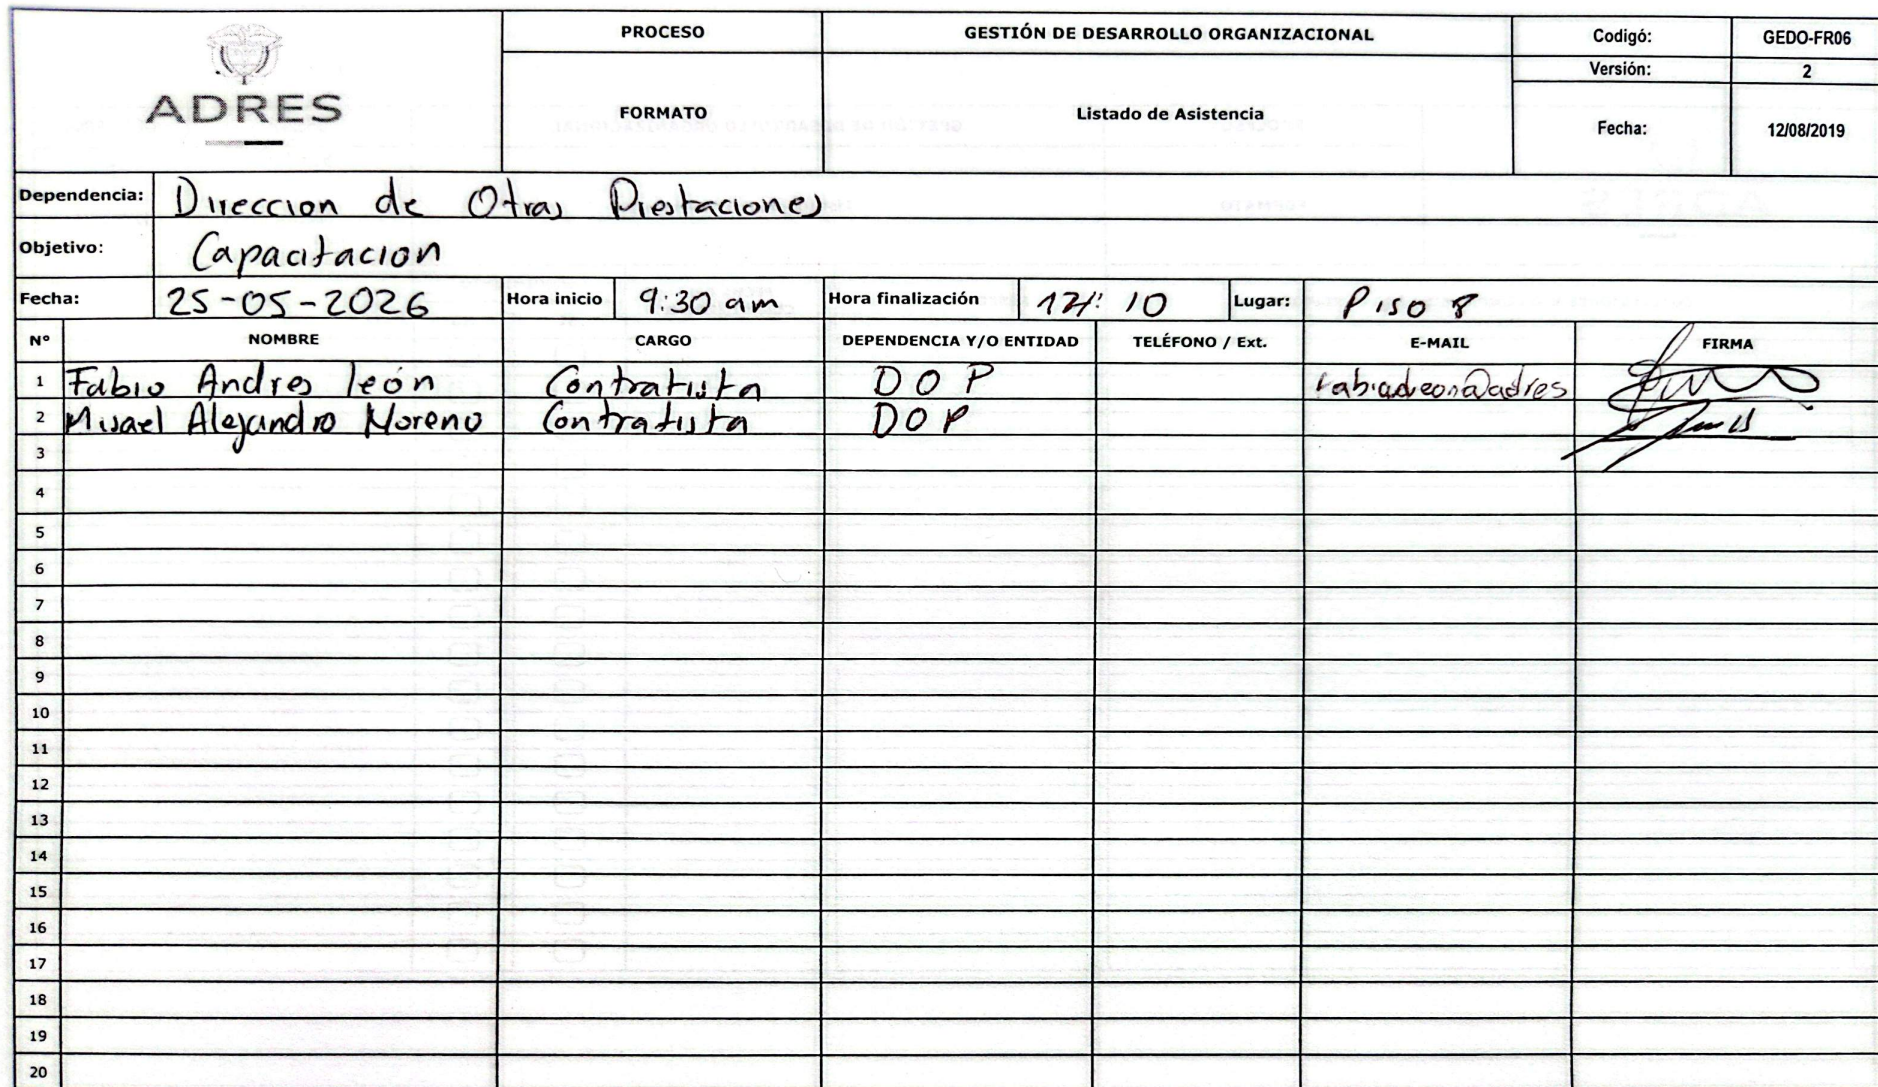 ADRES
PROCESO GESTIÓN DE DESARROLLO ORGANIZACIONAL Codigó: GEDO-FR06
Versión: 2
FORMATO Listado de Asistencia Fecha: 12/08/2019
Dependencia: Direccion de Otras Prestaciones
Objetivo: Capacitacion
Fecha: 25-05-2026 Hora inicio 9:30 am Hora finalización : 10 Lugar: Piso 8
N° NOMBRE CARGO DEPENDENCIA Y/O ENTIDAD TELÉFONO / Ext. E-MAIL FIRMA
1 Fabio Andres león Contratista DOP
2 Misael Alejandro Moreno Contratista DOP
3
4
5
6
7
8
9
10
11
12
13
14
15
16
17
18
19
20